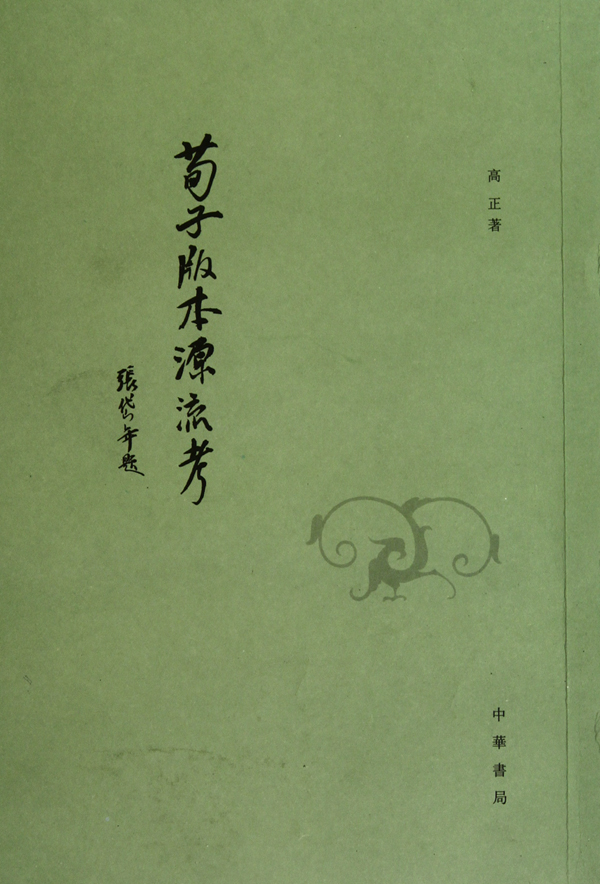 高正著
荀子版本源流考
張岱年題
中華書局